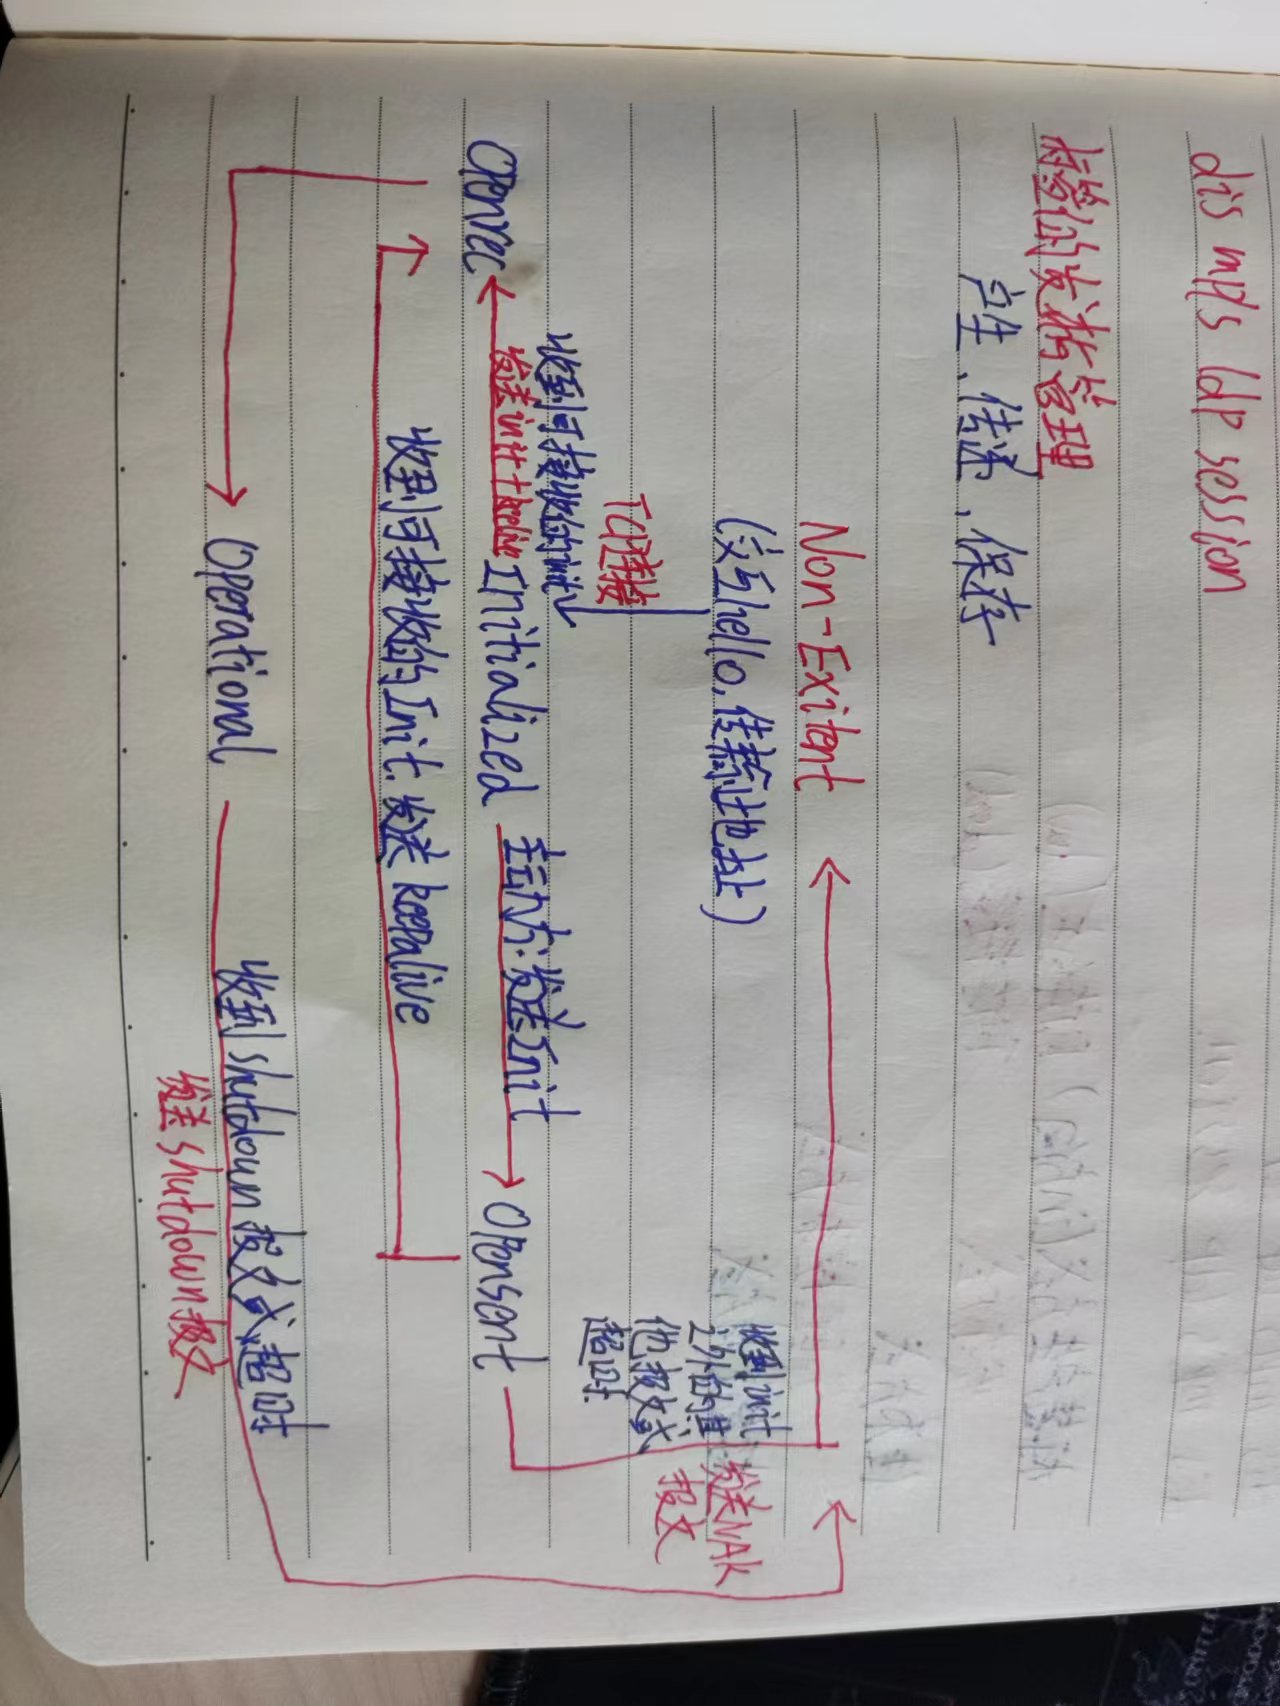 dis mpls ldp session
标签的发布与管理
产生、传递、保存
Non-Exitent
(交互hello,传输地址)
TCP连接
收到可接收的init
发送init+keeplive
Openrec
Initialized
主动方:发送Init
Opensent
收到init
之外的其
他报文或
超时
发送NAK
报文
收到可接收的Init.发送keepalive
Operational
收到shutdown报文或超时
发送shutdown报文